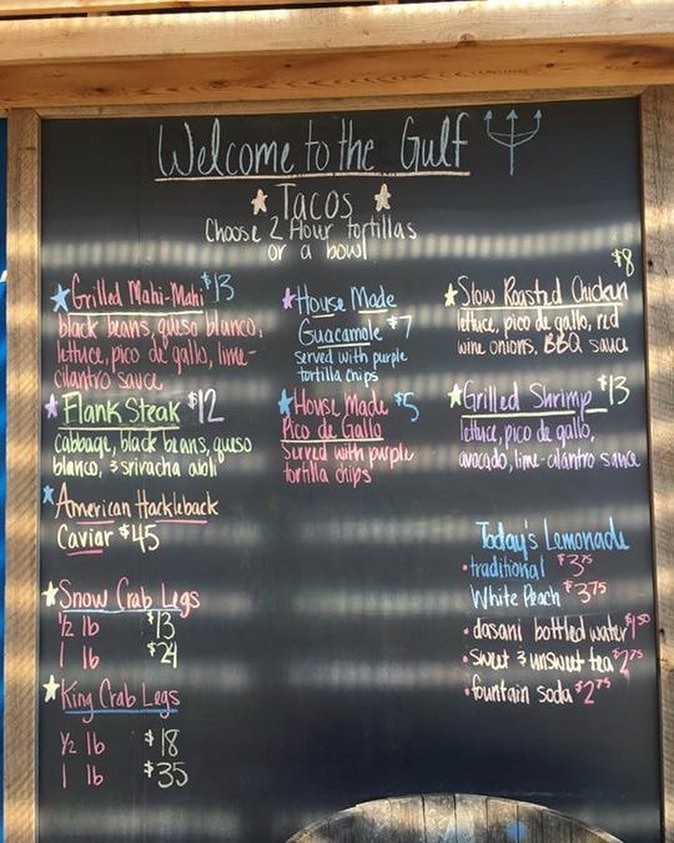 Welcome to the Gulf
Tacos
Choose 2 flour tortillas
or a bowl
Grilled Mahi-Mahi $13
black beans, queso blanco,
lettuce, pico de gallo, lime-
cilantro sauce
Flank Steak $12
cabbage, black beans, queso
blanco, & sriracha aioli
American Hackleback
Caviar $45
Snow Crab Legs
1/2 lb $13
1 lb $24
King Crab Legs
1/2 lb $18
1 lb $35
House Made
Guacamole $7
served with purple
tortilla chips
House Made $5
Pico de Gallo
Served with purple
tortilla chips
$8
Slow Roasted Chicken
lettuce, pico de gallo, red
wine onions, BBQ sauce
Grilled Shrimp $13
lettuce, pico de gallo,
avocado, lime-cilantro sauce
Today's Lemonade
• traditional $3.75
White Peach $3.75
• dasani bottled water $1.50
• sweet & unsweet tea $2.75
• fountain soda $2.75